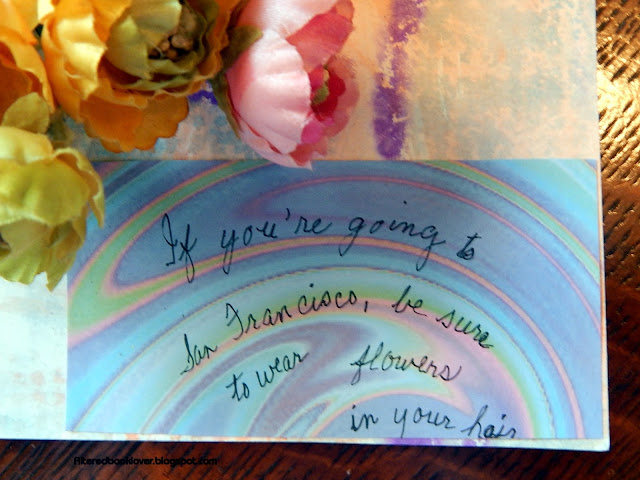 If you're going to
San Francisco, be sure
to wear flowers
in your hair
Alteredbooklover.blogspot.com